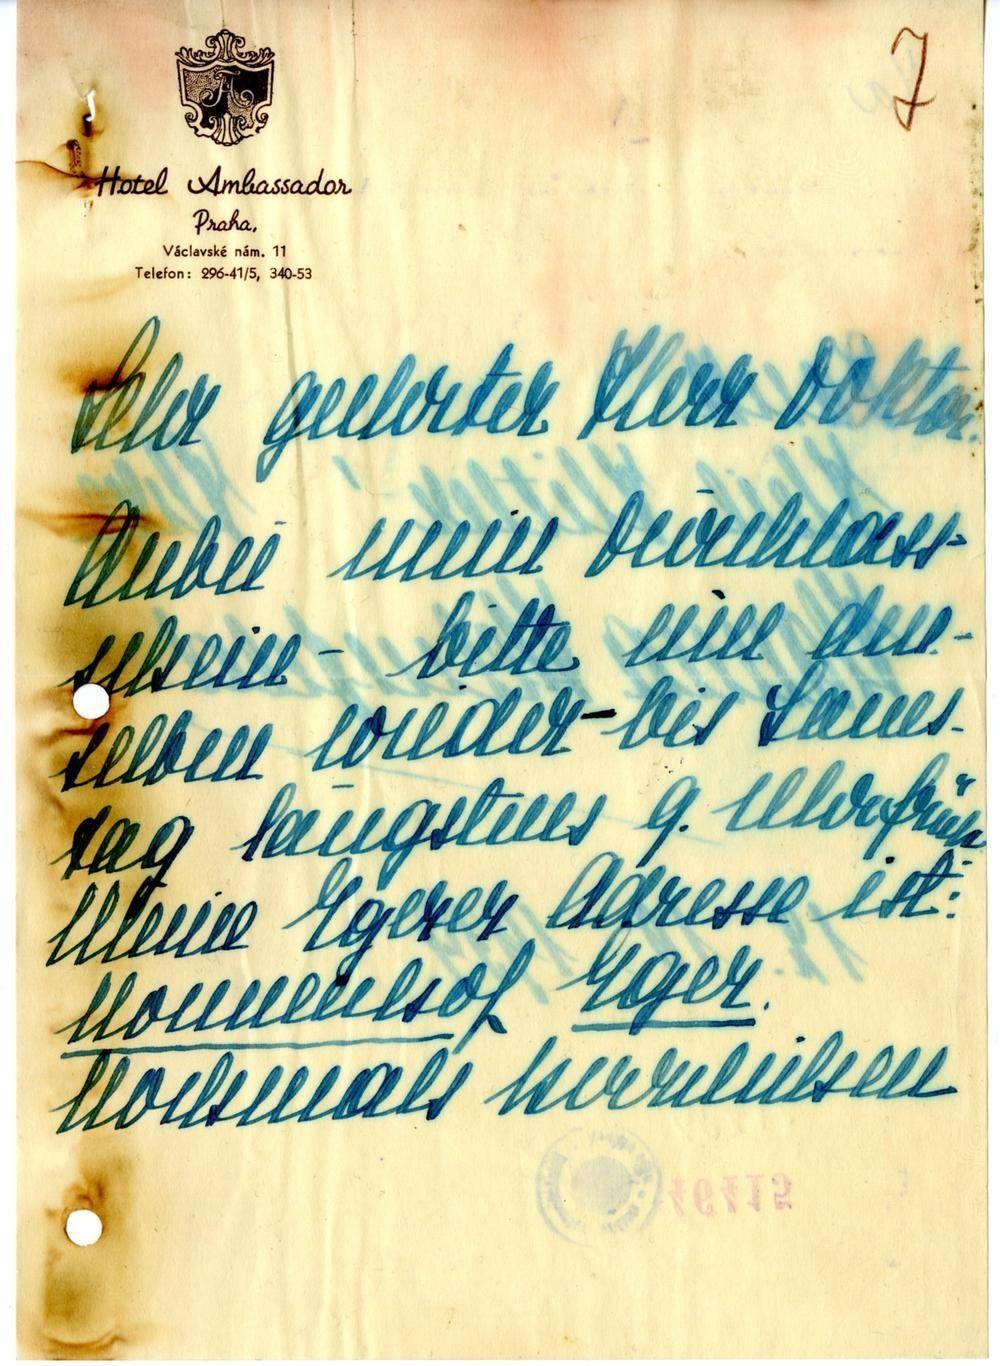 7
A
Hotel Ambassador
Praha,
Václavské nám. 11
Telefon: 296-41/5, 340-53
Sehr geehrter Herr Doktor.
Anbei meinen Durchlass-
schein - bitte um den-
selben wieder - bis Sams-
tag längstens 9. Uhr früh
Meine Egerer Adresse ist:
Nonnenhof Eger.
Nochmals herzlichen
46415